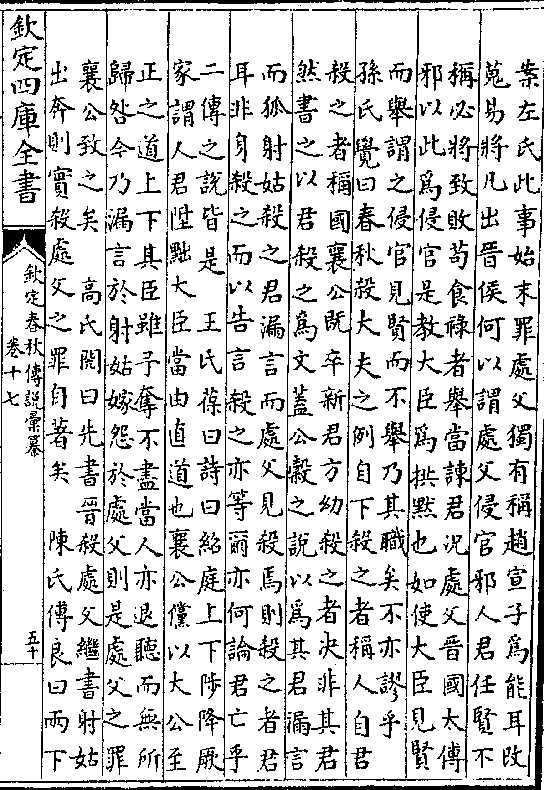 案左氏此事始末罪處父獨有稱趙宣子爲能耳改
蒐易將凡出晉侯何以謂處父侵官邪人君任賢不
稱必將致敗苟食祿者舉當諫君況處父晉國太傅
邪以此爲侵官是教大臣爲拱默也如使大臣見賢
而舉謂之侵官見賢而不舉乃其職矣不亦謬乎
孫氏覺曰春秋殺大夫之例自下殺之者稱人自君
殺之者稱國襄公既卒新君方幼殺之者决非其君
然書之以君殺之爲文蓋公穀之說以爲其君漏言
而狐射姑殺之君漏言而處父見殺焉則殺之者君
耳非身殺之而以告言殺之亦等爾亦何論君亡乎
二傳之說皆是 王氏葆曰詩曰紹庭上下陟降厥
家謂人君陞黜大臣當由直道也襄公儻以大公至
正之道上下其臣雖予奪不盡當人亦退聽而無所
歸咎今乃漏言於射姑嫁怨於處父則是處父之罪
襄公致之矣 高氏閌曰先書晉殺處父繼書射姑
出奔則實殺處父之罪自著矣 陳氏傅良曰兩下
欽定四庫全書
欽定春秋傳說彙纂
卷十七
五十